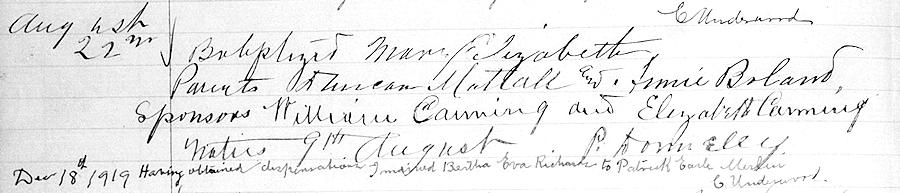 C Underwood
August
22nd Babptized Mary Elizabeth
Parents Duncan Metcalf and Annie Boland,
Sponsors William Canning and Elizabeth Canning
Natus 9th August P. Donnelly
Dec 18th 1919 Having obtained dispensation I married Bertha Eva Richard to Patrick Earle
C. Underwood.